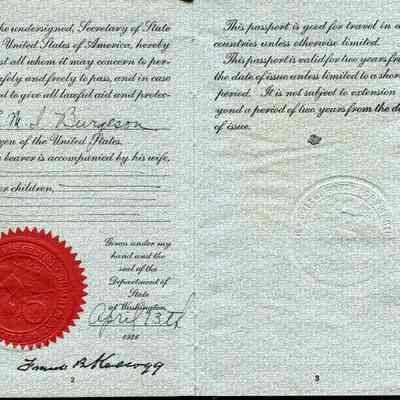 he undersigned, Secretary of State
United States of America, hereby
st all whom it may concern to per-
afely and freely to pass, and in case
d to give all lawful aid and protec-
M. S. Burgeson
zen of the United States.
bearer is accompanied by his wife,
or children,
Given under my
hand and the
seal of the
Department of
State
at Washington,
April 13th
1926
Frank B. Kellogg
2
This passport is good for travel in a
countries unless otherwise limited.
This passport is valid for two years from
the date of issue unless limited to a shor
period. It is not subject to extension
yond a period of two years from the da
of issue.
3